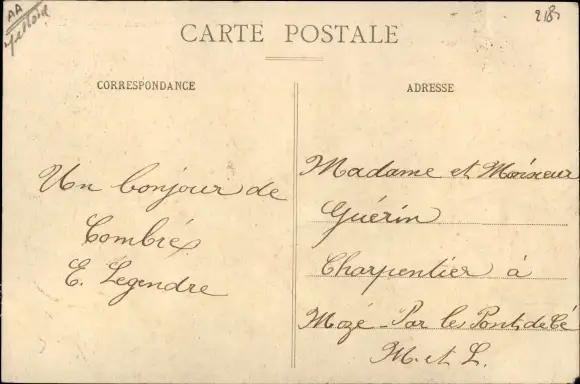 AA
218
CARTE POSTALE
CORRESPONDANCE
ADRESSE
Un bonjour de
Combrée
E. Legendre
Madame et Monsieur
Guérin
Charpentier à
Mozé - Par les Ponts de Cé
M. et L.